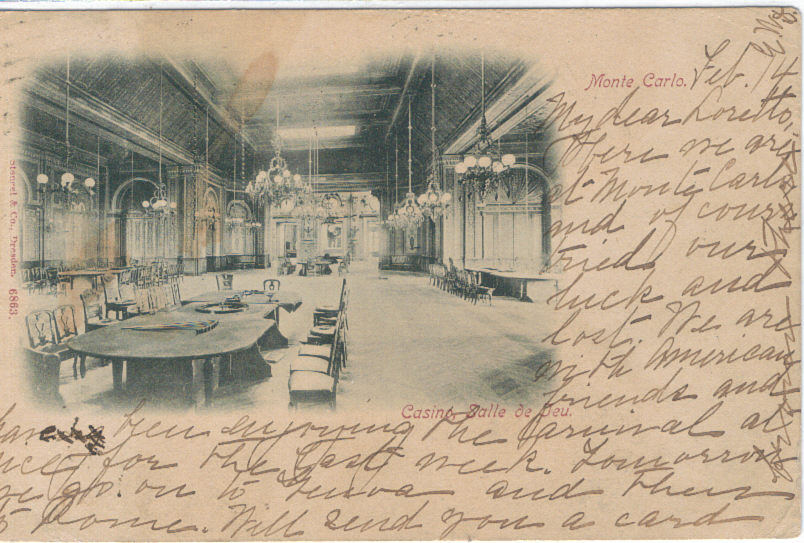 Monte Carlo. Feb. 14
My dear Loretto,
Here we are
at Monte Carlo
and of course
tried our
luck and
lost. We are
with American
friends and
have been enjoying the Carnival at
Nice for the last week. Tomorrow
we go on to Genoa and then
to Rome. Will send you a card
Casino, Salle de Jeu.
Stengel & Co., Dresden. 6863.